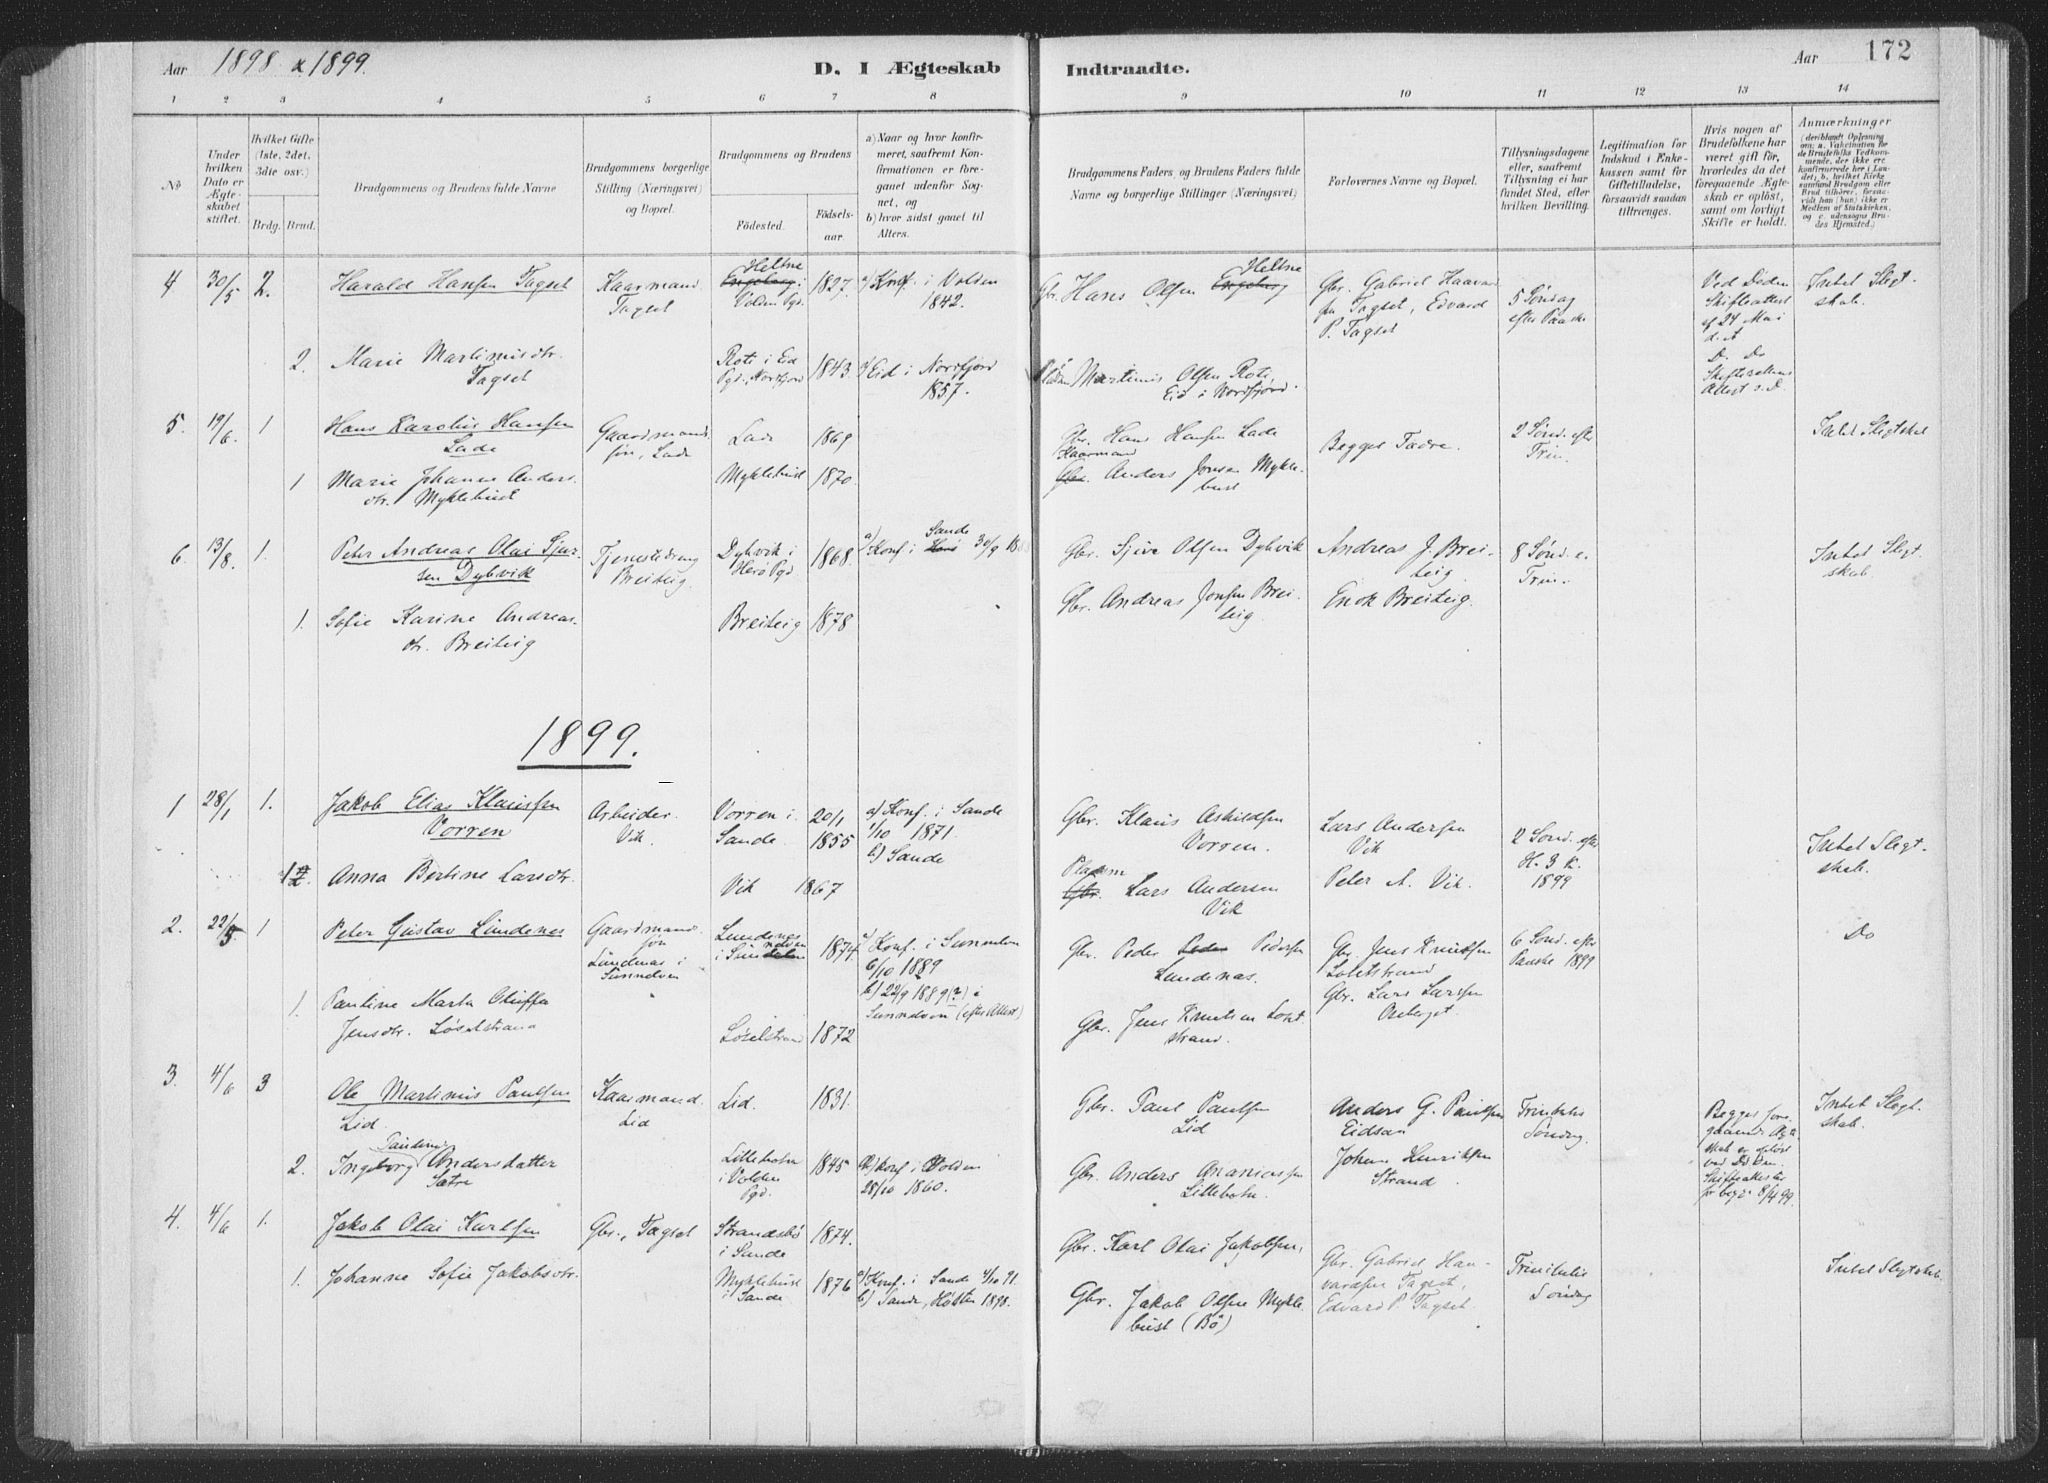 Aar 1898 & 1899.
D. I Ægteskab Indtraadte.
Aar 172
1 2 3 4 5 6 7 8 9 10 11 12 13 14
No
Under hvilken Dato er Ægteskabet stiftet.
Hvilket Gifte (1ste, 2det, 3die osv.)
Brdg. Brud.
Brudgommens og Brudens fulde Navne
Brudgommens borgerlige Stilling (Næringsvei) og Bopæl.
Brudgommens og Brudens
Fødested.
Fødselsaar.
a) Naar og hvor konfirmeret, saafremt Konfirmationen er foregaaet udenfor Sognet, og
b) hvor sidst gaaet til Alters.
Brudgommens Faders, og Brudens Faders fulde Navne og borgerlige Stillinger (Næringsvei)
Forlovernes Navne og Bopæl.
Tillysningsdagene eller, saafremt Tillysning ei har fundet Sted, efter hvilken Bevilling.
Legitimation for Indskud i Enkekassen samt for Giftetilladelse, forsaavidt saadan tiltrænges.
Hvis nogen af Brudefolkene har været gift før, hvorledes da det foregaaende Ægteskab er opløst, samt om lovligt Skifte er holdt.
Anmærkninger
(deriblandt Oplysning om: a. Vaccination for de Brudefolks Vedkommende, der ikke ere konfirmerede her i Landet; b. hvilket Kirkesamfund Brudgom eller Brud tilhører, forsaavidt han (hun) ikke er Medlem af Statskirken, og c. udensogns Brudes Hjemsted.)
4 30/5 2. Harald Hansen Tagset
Kaarmand Tagset
Heltne Engeberg i Volden Pgd.
1827.
a) Konf. i Volden 1842.
Gbr. Hans Olsen Heltne Engeberg
Gbr. Gabriel Haavardsen Tagset, Edvard P. Tagset
5 Søndag efter Paaske
Ved Døden Skifteattest af 24 Mai d. A
Intet Slegtskab.
2. Marie Martinusdtr. Tagset
Rote i Eid Pgd., Nordfjord
1843.
a) Eid i Nordfjord 1857.
Martinus Olsen Rote, Eid i Nordfjord.
Do. Do
5. 19/6. 1 Hans Karolius Hansen Lade
Gaardmandssøn, Lade
Lade 1869
Gbr. Hans Hansen Lade
Begges Fædre.
2 Sønd. efter Trin.
Intet Slegtskab
1 Marie Johanne Andersdtr. Myklebust
Myklebust 1870.
Kaarmand Gbr. Anders Jonsen Myklebust
6. 13/8. 1. Peter Andreas Olai Sjursen Dybvik
Tjenestedreng Breiteig.
Dybvik i Herø Pgd.
1868.
a) Konf. i Sande Herø 30/9 18
Gbr. Sjur Olsen Dybvik
Andreas J. Breiteig.
8 Sønd. e. Trin.
Intet Slegtskab
1. Sofie Karine Andreasdtr. Breiteig
Breiteig 1878
Gbr. Andreas Jonsen Breiteig
Enok Breiteig.
1899.
1 28/1 1. Jakob Elias Klausen Vorren
Arbeider. Vik.
Vorren i Sande.
20/1 1855
a) Konf. i Sande 1/10 1871.
b) Sande
Gbr. Klaus Askildsen Vorren.
Lars Andersen Vik
2 Sønd. efter H. 3 K. 1899
Intet Slegtskab.
1 Anna Bertine Larsdtr.
Vik 1867
Pladsm Gbr. Lars Andersen Vik
Peter A. Vik.
2. 22/5. 1 Peter Gustav Lundenes
Gaardmandssøn Lundenæs i Sunndven
Lundenes i Sunndven
1874
a) Konf. i Sunndven 6/10 1889
b) 22/9 1889 (?) i Sunndven (efter Attest)
Gbr. Peder Peder Pedersen Lundenæs.
Gbr. Jens Knudsen Løsetstrand
6 Sønd. efter Paaske 1899
Do
1. Pauline Marta Oluffa Jensdtr. Løsetstrand
Løsetstrand 1872
Gbr. Jens Knutsen Løsetstrand.
Gbr. Lars Larsen
3. 4/6 3 Ole Martinus Paulsen Lid.
Kaarmand. Lid
Lid. 1831.
Gbr. Paul Paulsen Lid
Anders G. Paulsen Eidsaa
Trinitatis Søndag.
Begges foregaaende Ægteskab er opløst ved Døden. Skifteattester for begge 8/4 99.
Intet Slegtskab.
2. Ingeborg Pauline Andersdatter Sætre
Lillebøhn i Volden Pgd.
1845
a) Konf. i Volden 28/10 1860.
Gbr. Anders Ananiassen Lillebøhn.
Johan Henriksen Strand.
4. 4/6 1. Jakob Olai Karlsen
Gbr., Tagset
Strandsbø i Sande
1874.
Gbr. Karl Olai Jakobsen,
1. Johanne Sofie Jakobsdtr.
Myklebust i Sande
1876
a) Konf. i Sande 4/10 91.
b) Sande, Høsten 1898.
Gbr. Jakob Olsen Myklebust (Bø)
Gbr. Gabriel Haavardsen Tagset, Edvard P. Tagset.
Trinitatis Søndag
Intet Slegtskab.